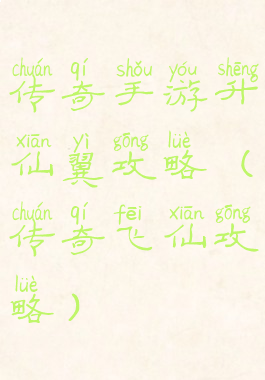 chuán qí shǒu yóu shēng
传奇手游升
xiān yì gōng lüè
仙翼攻略（
chuán qí fēi xiān gōng
传奇飞仙攻
lüè
略）